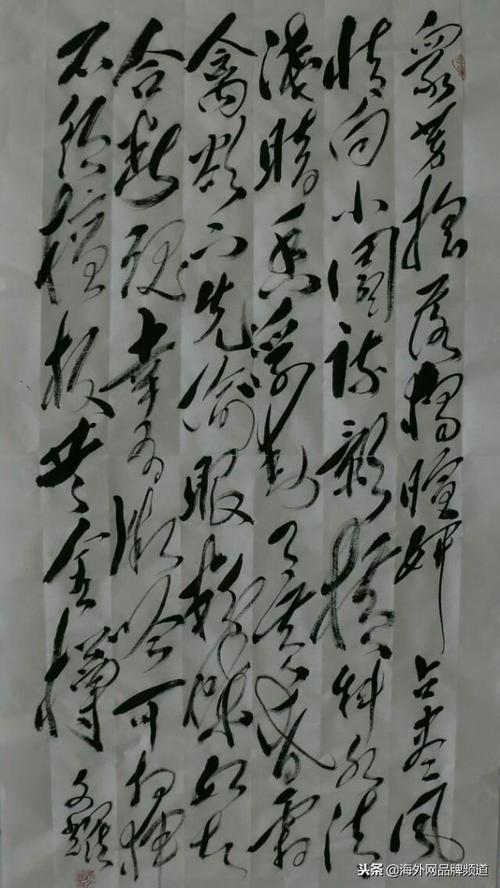 众芳摇落独暄妍占尽风
情向小园疏影横斜水清
浅暗香浮动月黄昏霜
禽欲下先偷眼粉蝶如知
合断魂幸有微吟可相狎
不须檀板共金樽
文耀
头条@海外网品牌频道